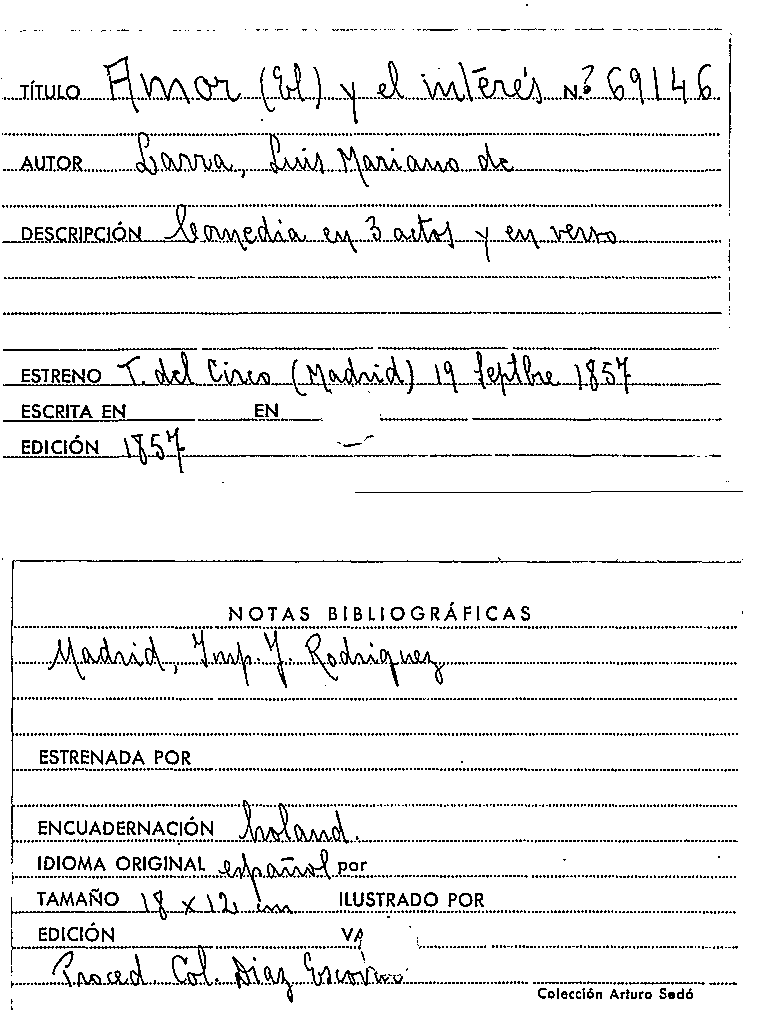 TÍTULO Amor (El) y el interés N.º 69146
AUTOR Larra, Luis Mariano de
DESCRIPCIÓN Comedia en 3 actos y en verso
ESTRENO T. del Circo (Madrid) 19 Septbre 1857
ESCRITA EN EN
EDICIÓN 1857
NOTAS BIBLIOGRÁFICAS
Madrid, Imp. J. Rodriguez
ESTRENADA POR
ENCUADERNACIÓN holand.
IDIOMA ORIGINAL español por
TAMAÑO 18 x 12 cm ILUSTRADO POR
EDICIÓN
Proced. Col. Diaz Escovar
Colección Arturo Sedó